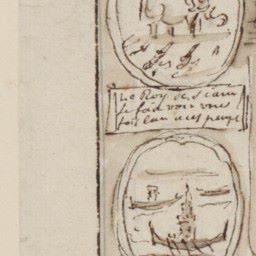 Le Roy de Siam
se fait voir une
fois l'an a ces peuple